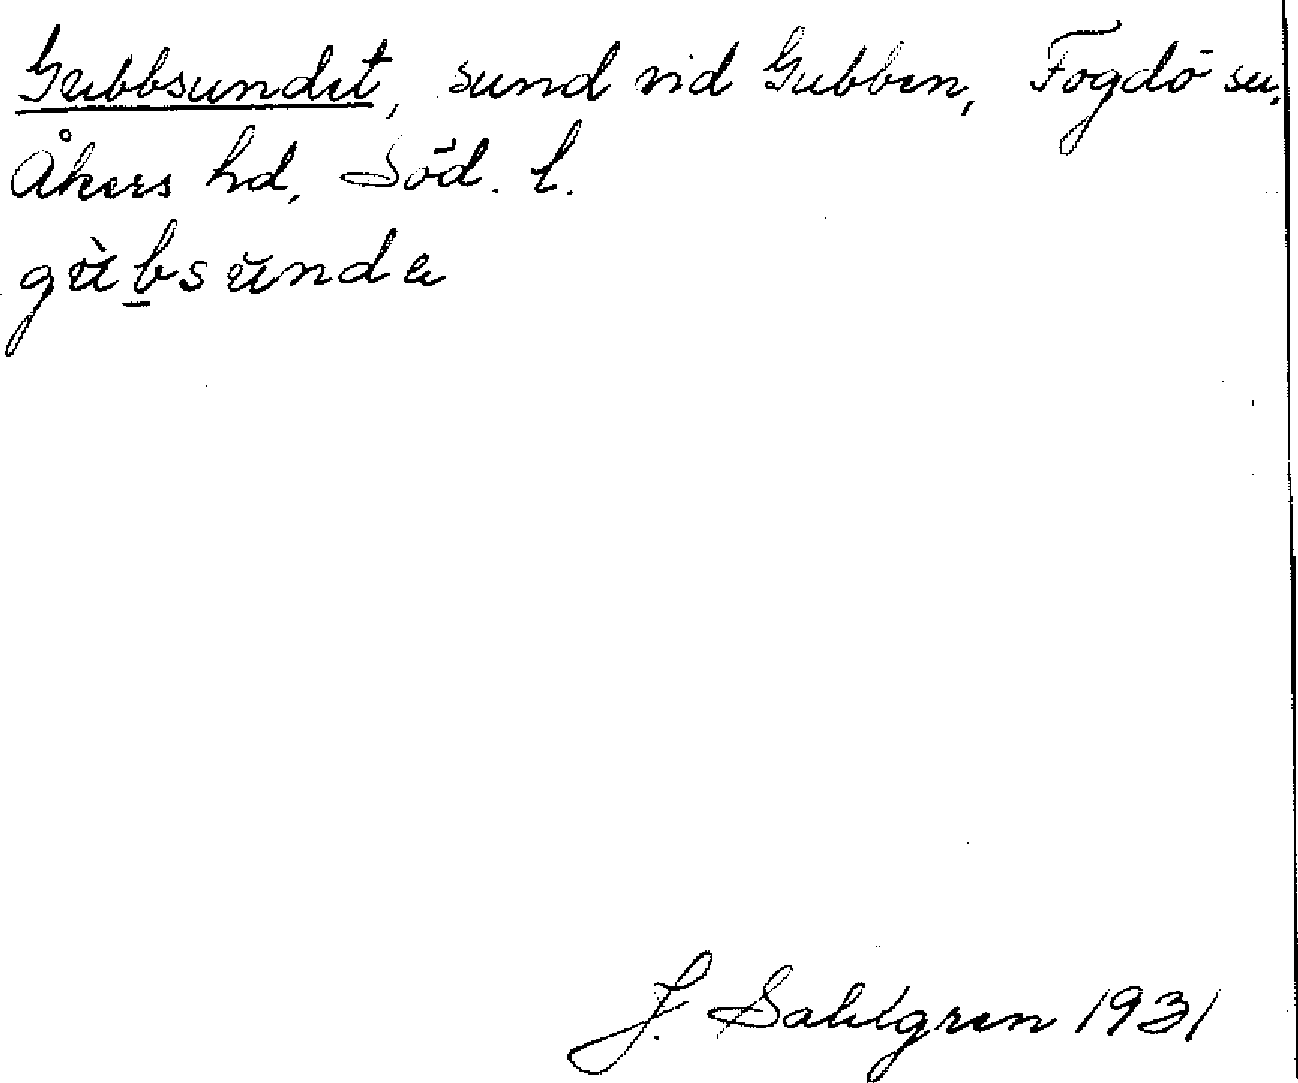 Gubbsundet, sund vid Gubben, Fogdö sn,
Åkers hd, Söd. l.
gùb̲sŭndə
J. Sahlgren 1931